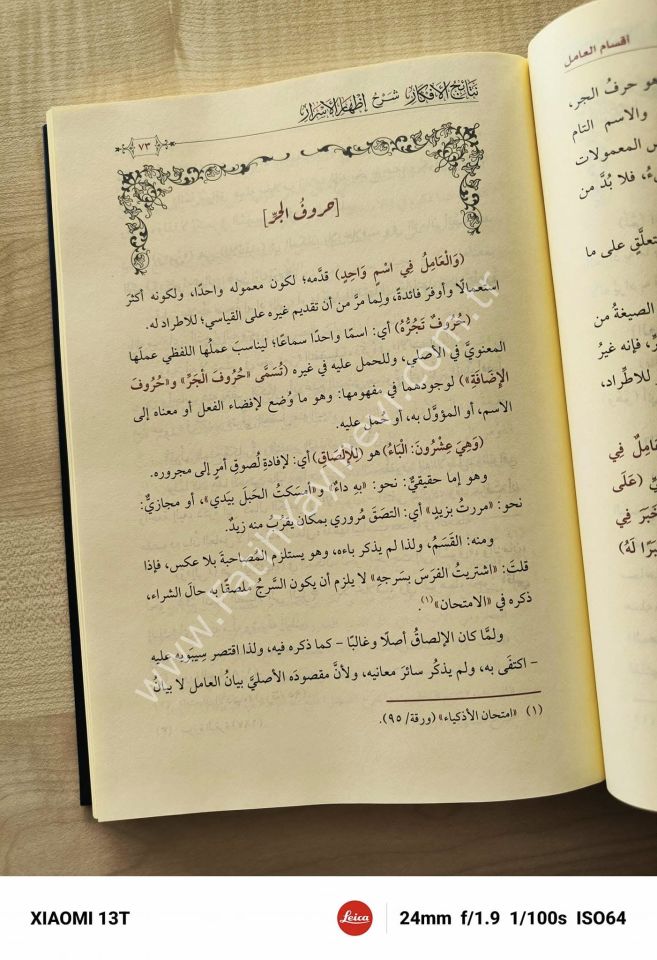 نتائج الأفكار شرح إظهار الأسرار
٧٣
[حروفُ الجرِّ]
(وَالْعَامِلُ فِي اسْمٍ وَاحِدٍ) قدَّمه؛ لكون معموله واحدًا، ولكونه أكثرَ
استعمالًا وأوفرَ فائدةً، ولِما مرَّ من أن تقديم غيره على القياسي؛ للاطراد له.
(حُرُوفٌ تَجُرُّهُ) أي: اسمًا واحدًا سماعًا؛ ليناسبَ عملُها اللفظي عملَها
المعنويَّ في الأصلي، وللحمل عليه في غيره (تُسَمَّى «حُرُوفَ الْجَرِّ» و«حُرُوفَ
الْإِضَافَةِ») لوجودهما في مفهومها: وهو ما وُضع لإفضاء الفعل أو معناه إلى
الاسم، أو المؤوَّل به، أو حُمل عليه.
(وَهِيَ عِشْرُونَ: الْبَاءُ) هو (لِلْإِلْصَاقِ) أي: لإفادة لُصوقِ أمرٍ إلى مجروره.
وهو إما حقيقيٌّ: نحو: «به داءٌ» و«أمسكتُ الحبلَ بيَدي»، أو مجازيٌّ:
نحو: «مررتُ بزيدٍ» أي: التصَقَ مُروري بمكان يقرُبُ منه زيدٌ.
ومنه: القَسَمُ، ولذا لم يذكر باءه، وهو يستلزم المُصاحبةَ بلا عكس، فإذا
قلتَ: «اشتريتُ الفرَسَ بسَرجِهِ» لا يلزم أن يكون السَّرجُ ملصَقًا به حالَ الشراء،
ذكره في «الامتحان»(١).
ولمَّا كان الإلصاقُ أصلًا وغالبًا – كما ذكره فيه، ولذا اقتصر سِيبَوَيهِ عليه
– اكتفى به، ولم يذكُر سائرَ معانيه، ولأنَّ مقصودَه الأصليَّ بيانُ العامل لا بيانُ
(١) «امتحان الأذكياء» (ورقة/ ٩٥).
أقسام العامل
هو حرفُ الجر،
والاسم التام
س المعمولات
فلا بُدَّ من
تعلَّق على ما
الصيغةُ من
فإنه غيرُ
للاطِّراد،
عَامِلٌ فِي
(عَلَى
خَبَرَ فِي
بَرًا لَهُ)
www.FatihYayinevi.com.tr
XIAOMI 13T
Leica
24mm f/1.9 1/100s ISO64